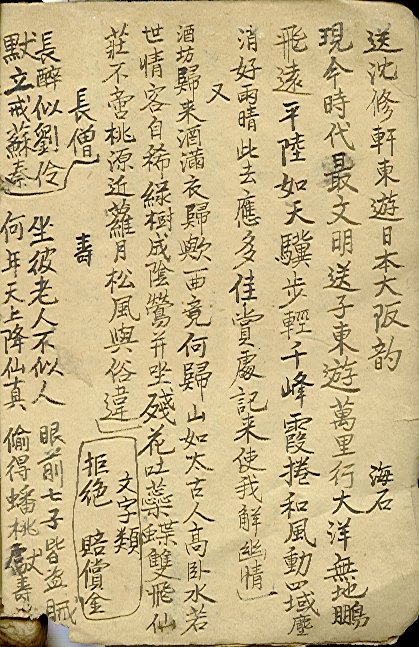 送沈修軒東遊日本大阪韵 海石
現今時代最文明送子東遊萬里行大洋無地鵬
飛遠平陸如天驥步輕千峰霞捲和風動四域塵
消好雨晴此去應多佳賞處記来使我解幽情
又
酒坊歸来酒滿衣歸歟西竟何歸山如太古人高臥水若
世情客自稀綠樹成陰鶯并坐殘花吐蘂蝶雙飛仙
莊不啻桃源近蘿月松風與俗違
文字類
拒絶 賠償金
長僧 壽
長醉似劉伶 坐彼老人不似人 眼前七子皆盗賊
默立戒蘇秦 何年天上降仙真 偷得蟠桃獻壽